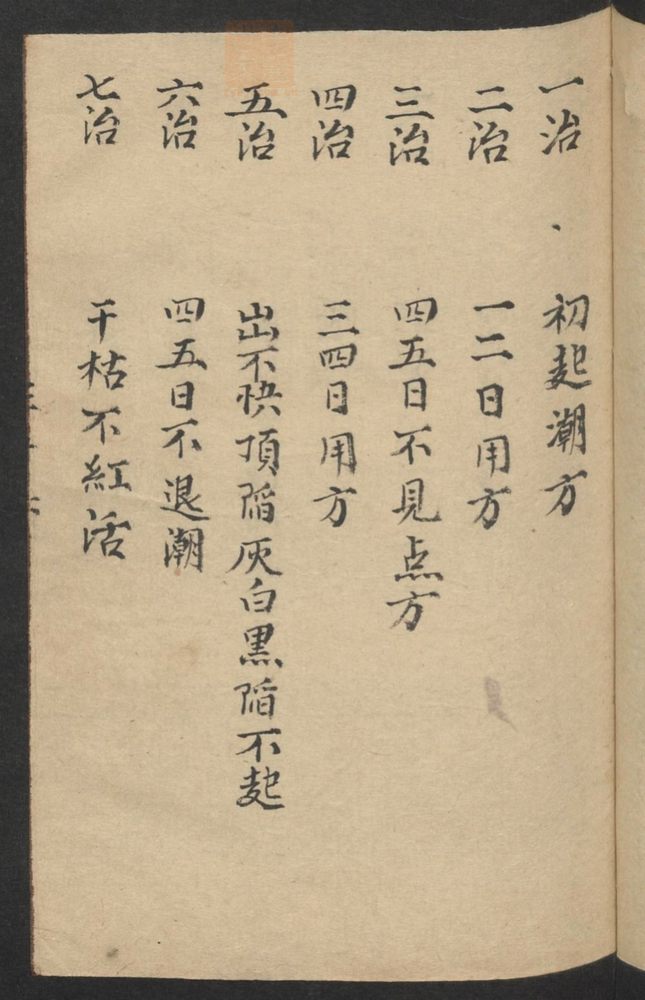 一治 初起潮方
二治 一二日用方
三治 四五日不見点方
四治 三四日用方
五治 出不快頂陷灰白黑陷不起
六治 四五日不退潮
七治 干枯不紅活